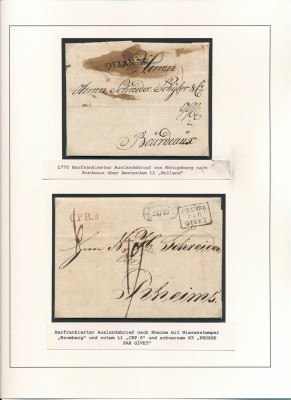 OLLANDE
Herren
Herren Schröder Schÿler & C.
in
Bourdeaux
1770 Barfrankierter Auslandsbrief von Königsberg nach
Bordeaux über Amsterdam L1 „Holland"
C.P.R.3
PRUSSE
PAR
GIVET
Rheims.
Barfrankierter Auslandsbrief nach Rheims mit Nierenstempel
„Bromberg" und rotem L1 „CRP.5" und schwarzem R3 „PRUSSE
PAR GIVET"